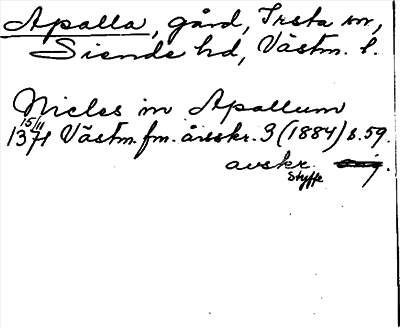 Apalla, gård, Irsta sn,
Siende hd, Västm. l.
Nicles in Apallum
15/11
1371 Västm. fm. årsskr. 3 (1884) s. 59.
avskr.
Styffe